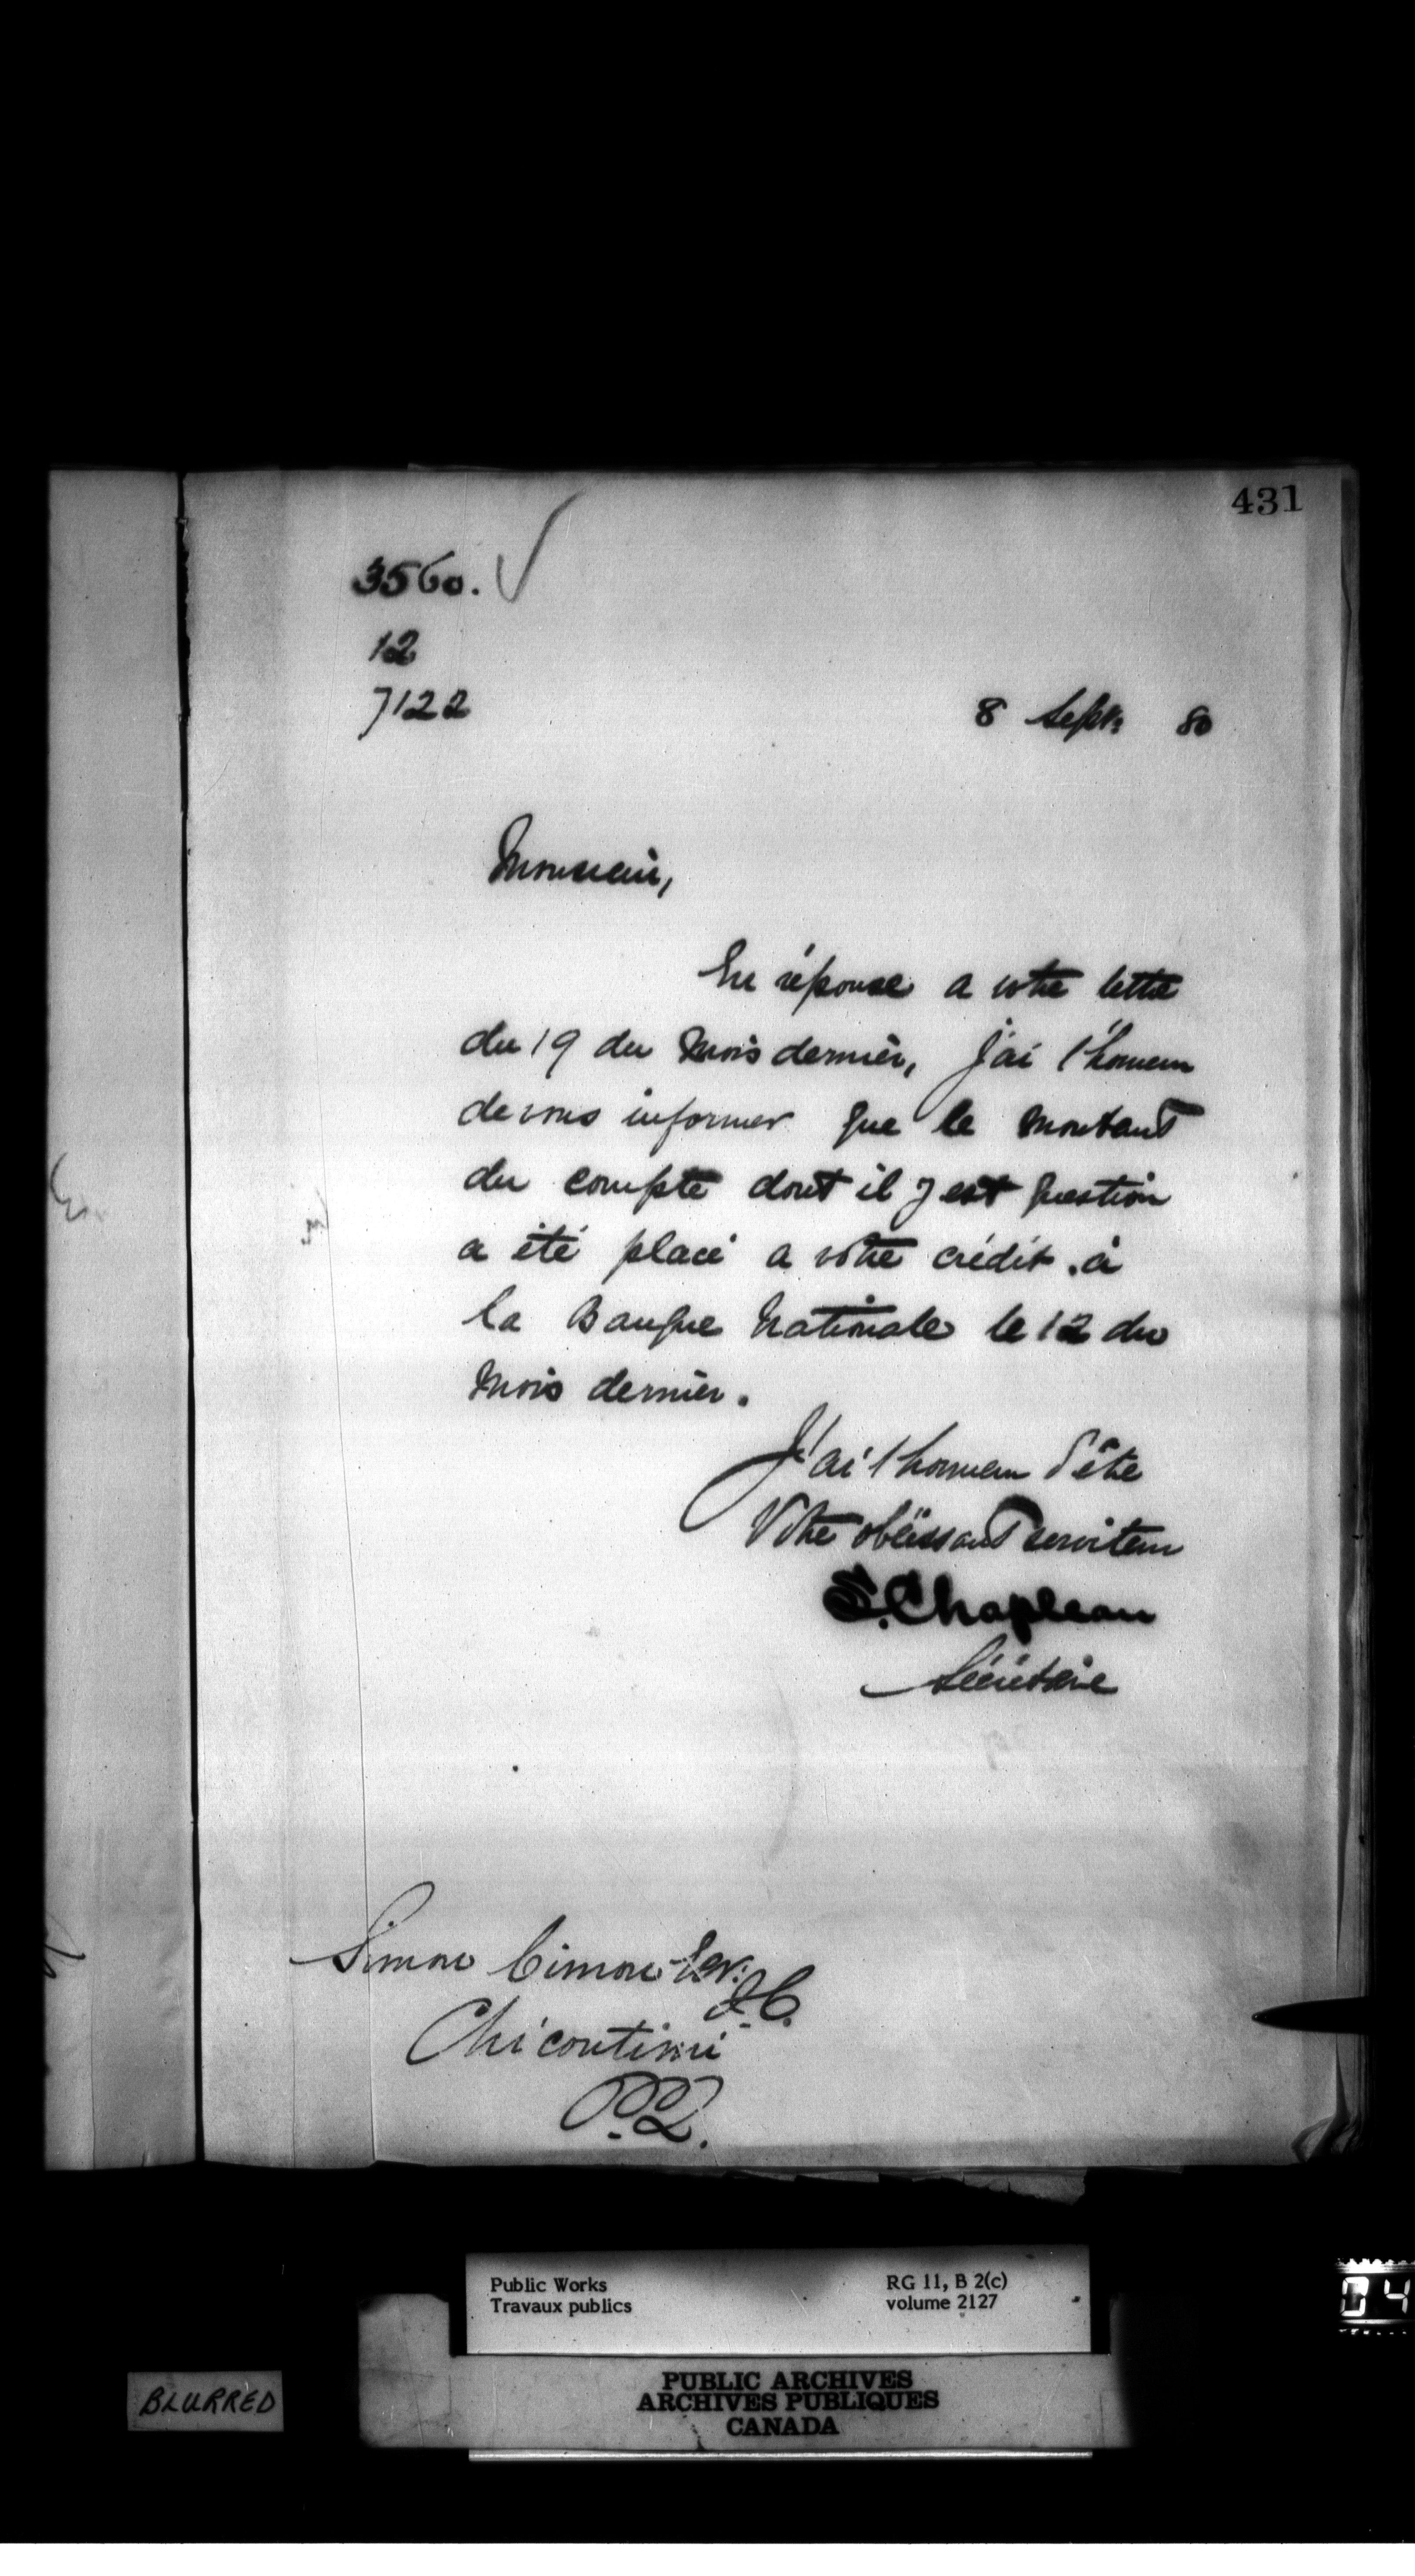 431
3560.
12
7122
8 Sept. 80
Monsieur,
En réponse a votre lettre
du 19 du mois dernier, j'ai l'honneur
de vous informer que le montant
du compte dont il y est question
a été placé a votre crédit, à
la Banque Nationale le 12 du
mois dernier.
J'ai l'honneur d'être
Votre obéissant serviteur
S. Chapleau
Sécrétaire
Simon Cimon
Chicoutimi
P.Q.
Public Works
Travaux publics
RG 11, B 2(c)
volume 2127
PUBLIC ARCHIVES
ARCHIVES PUBLIQUES
CANADA
BLURRED
04